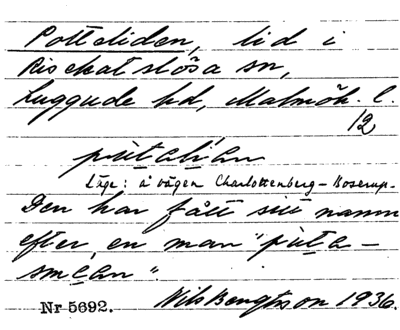 Potteliden, lid i
Risekatslösa sn,
Luggude hd, Malmöh. l.
12
pùtalían
Läge: å vägen Charlottenberg – Boserup.
Den har fått sitt namn
efter en man "pùta-
smeăn".
Nr 5692. Nils Bengtsson 1936.